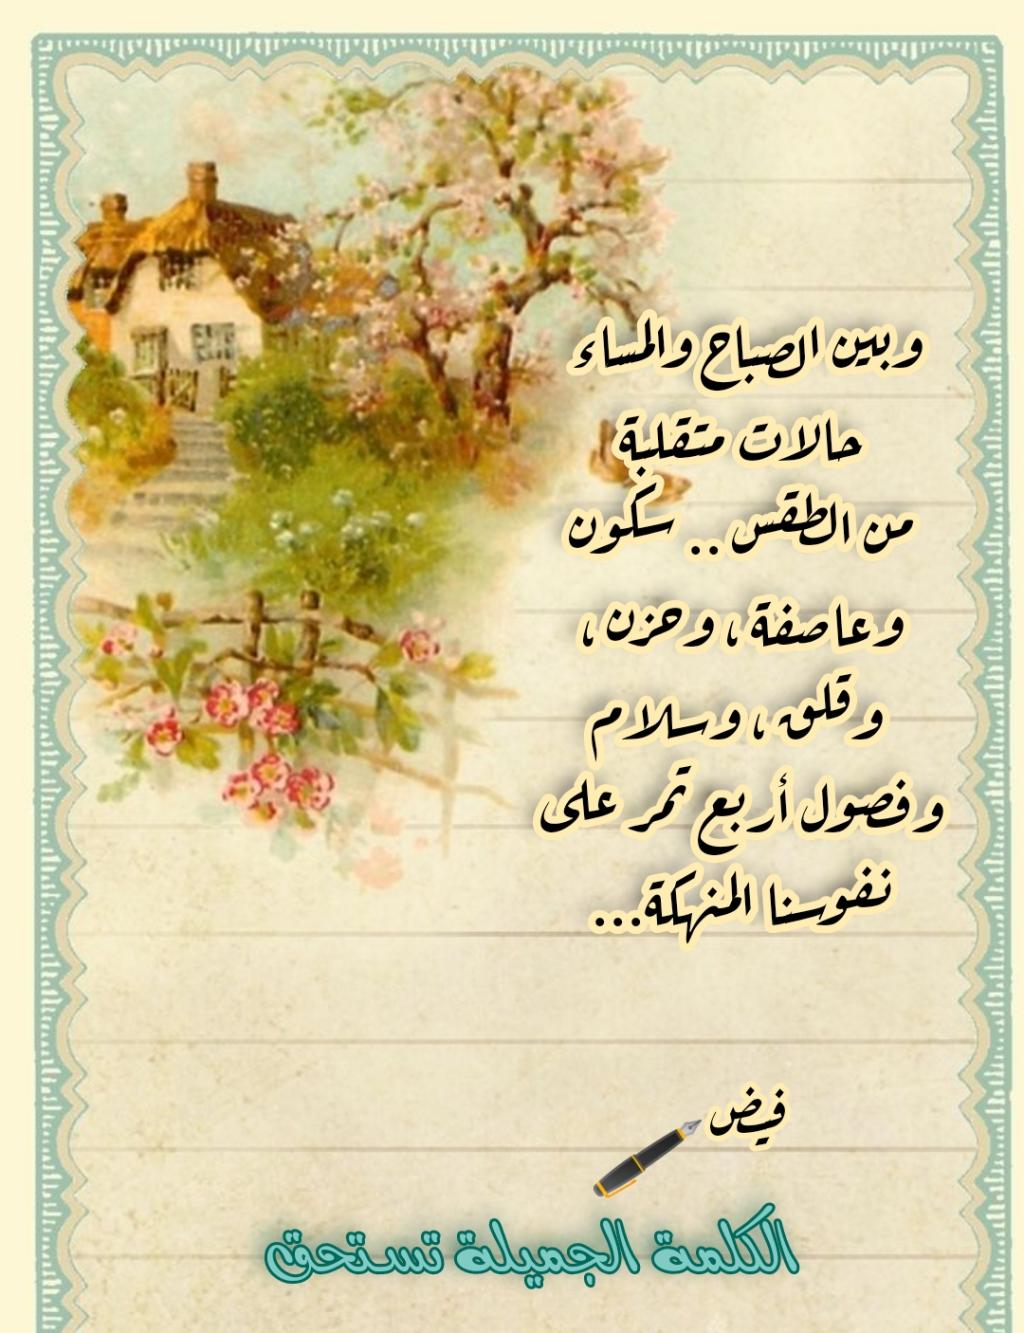 وبين الصباح والمساء
حالات متقلبة
من الطقس .. سكون
وعاصفة ، وحزن ،
وقلق ، وسلام
وفصول أربع تمر على
نفوسنا المنهكة...
فيض
الكلمة الجميلة تستحق